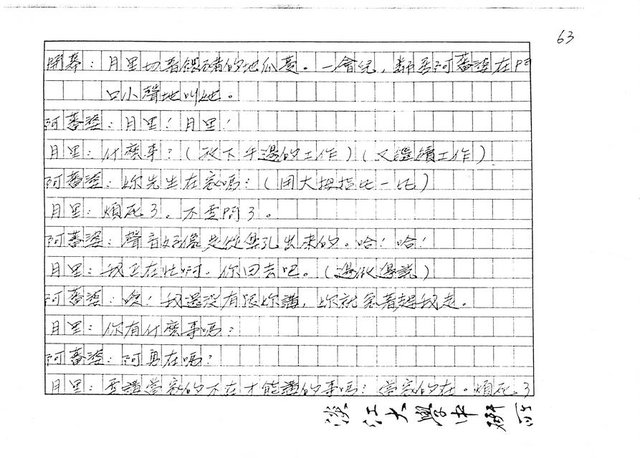 63
開幕：月里切着餵豬的地瓜蔓。一會兒，鄰居阿蕃婆在門
口小聲地叫她。
阿蕃婆：月里！月里！
月里：什麼事？（放下手邊的工作）（又繼續工作）
阿蕃婆：你先生在家嗎？（用大拇指比一比）
月里：煩死了，不要問了。
阿蕃婆：聲音好像是從鼻孔出來的。哈！哈！
月里：我正在忙呵，你回去吧。（邊做邊說）
阿蕃婆：唉！我還沒有跟你講，你就急著趕我走。
月里：你有什麼事嗎？
阿蕃婆：阿勇在嗎？
月里：要講當家的不在才能講的事嗎？當家的在。煩死了
淡江大學中研所